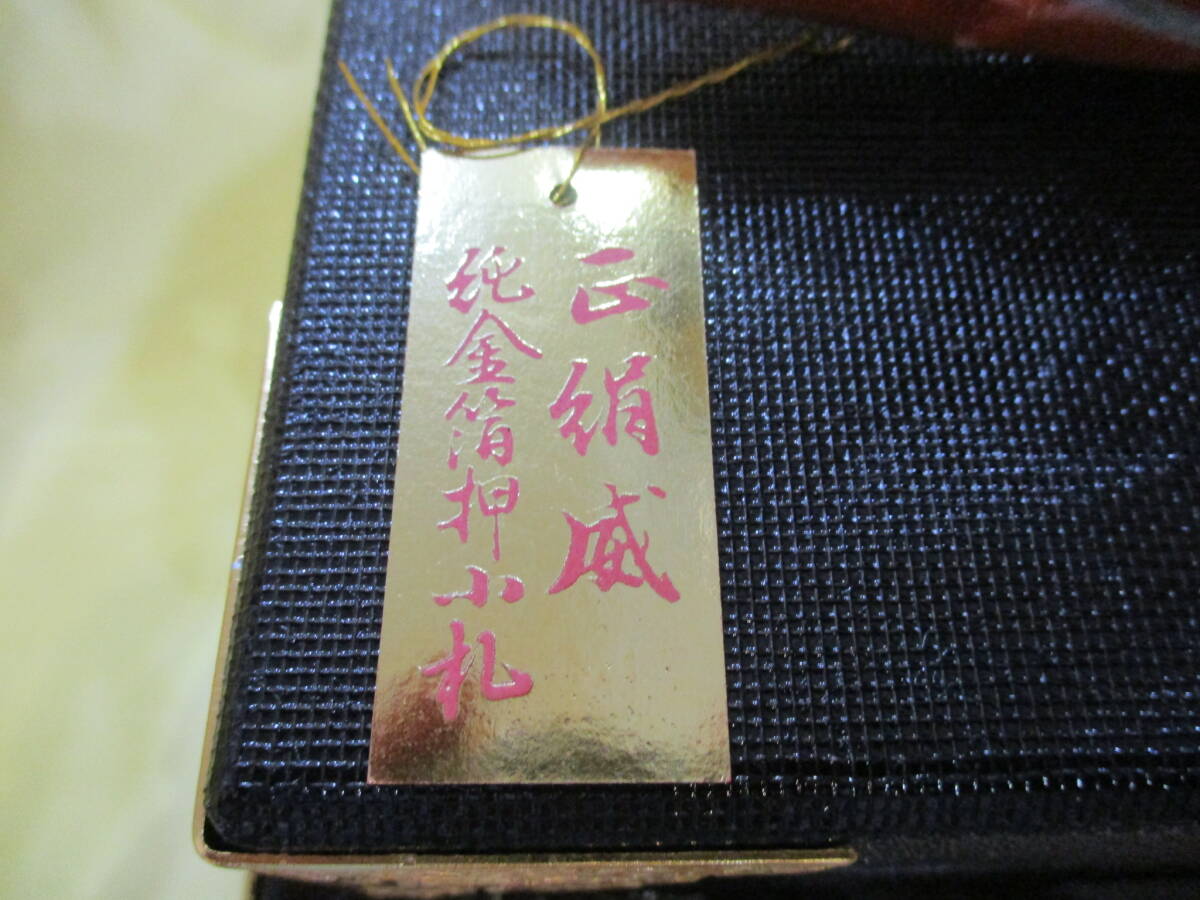 正絹威
純金箔押小札